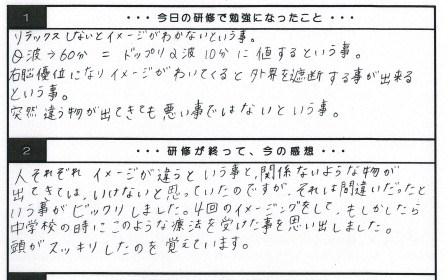 1 ・・・今日の研修で勉強になったこと・・・
リラックスしないとイメージがわかないという事。
α波→60分 = ドップリα波 10分に値するという事。
右脳優位になりイメージがわいてくると外界を遮断する事が出来る
という事。
突然違う物が出てきても悪い事ではないという事。
2 ・・・研修が終って、今の感想・・・
人それぞれイメージが違うという事と、関係ないような物が
出てきては、いけないと思っていたのですが、それは間違いだったと
いう事がビックリしました。4回のイメージングをして、もしかしたら
中学校の時にこのような療法を受けた事を思い出しました。
頭がスッキリしたのを覚えています。